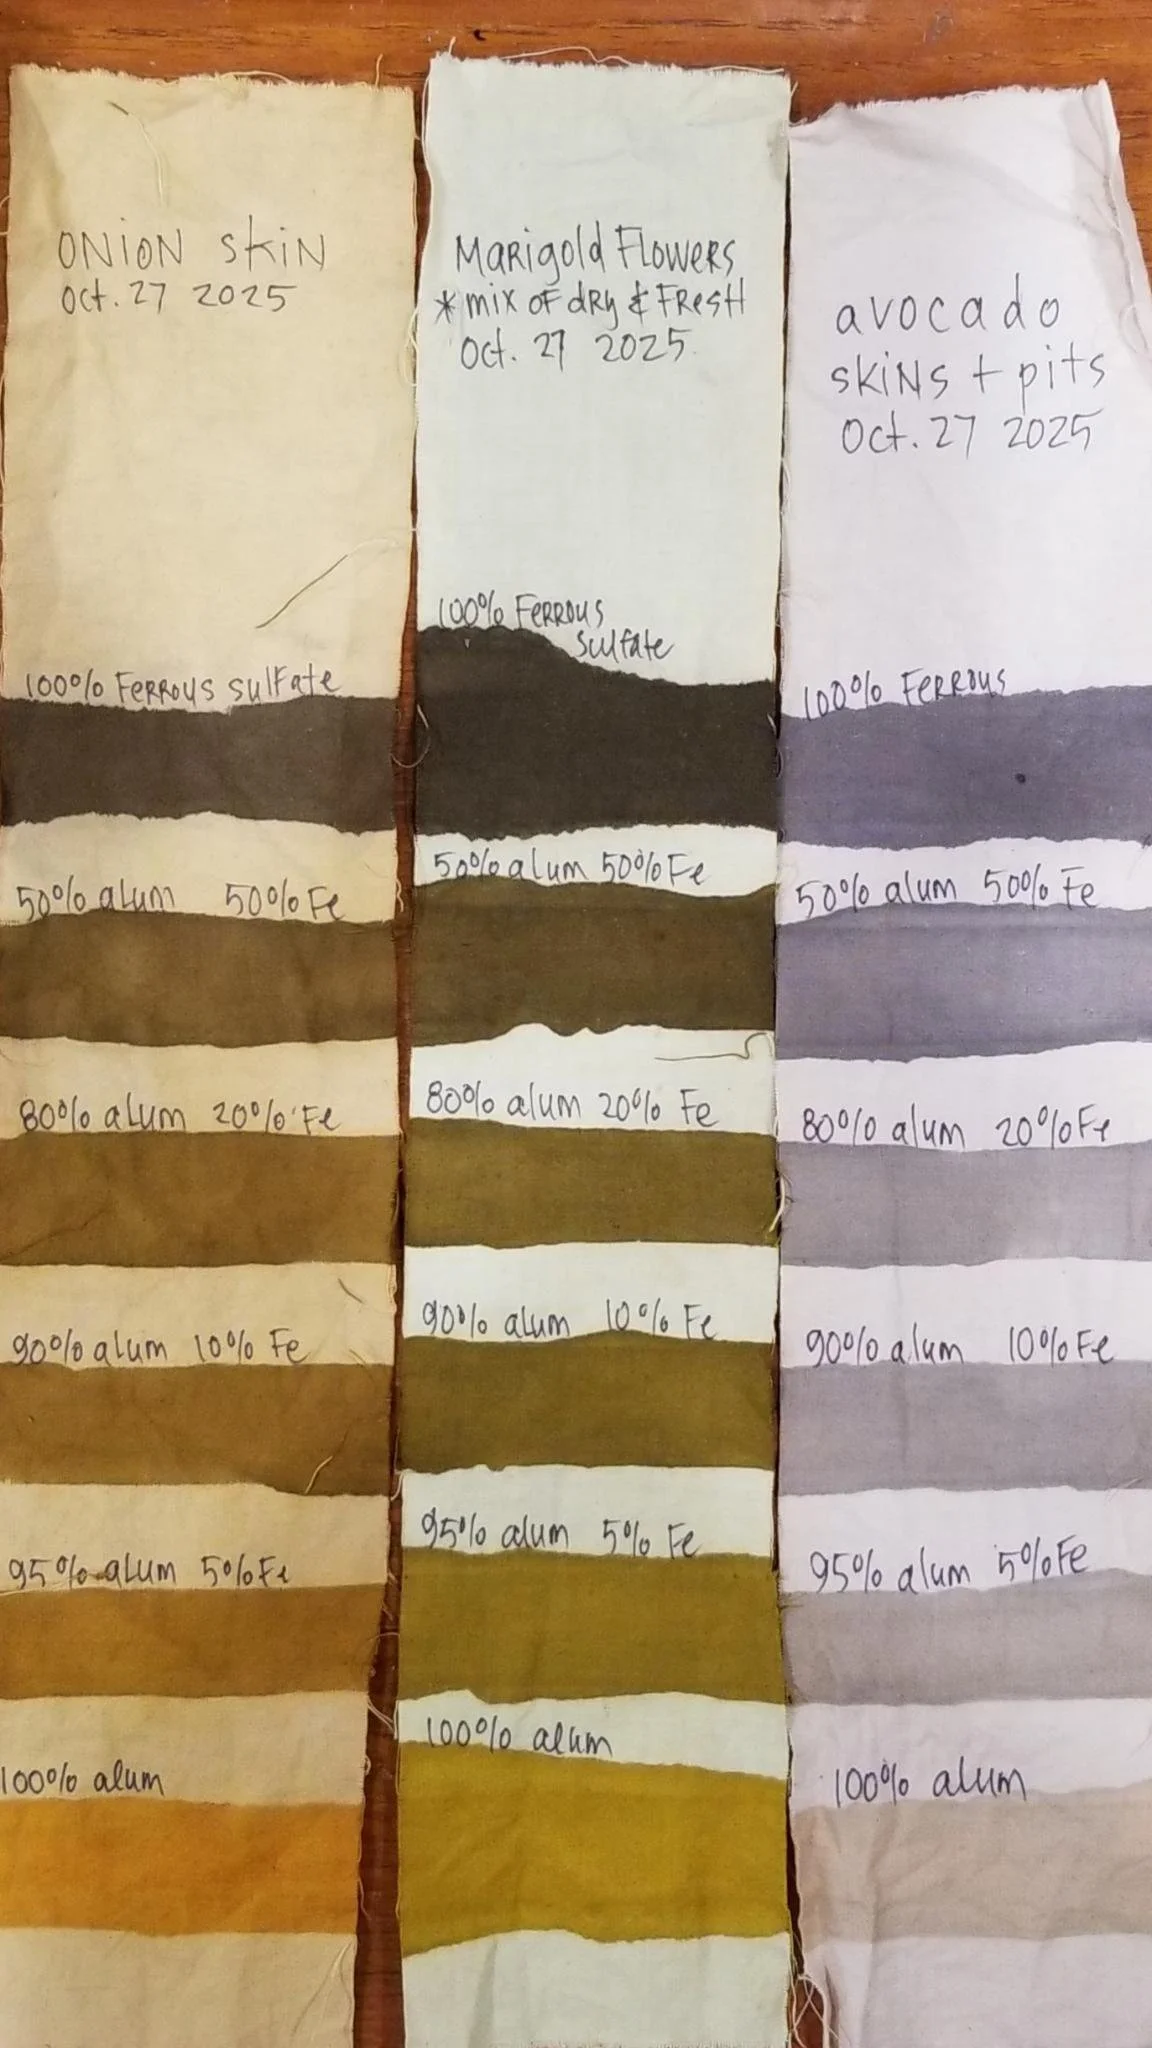 ONION SKIN
Oct. 27 2025
100% FERROUS SULFATE
50% alum 50% Fe
80% alum 20% Fe
90% alum 10% Fe
95% alum 5% Fe
100% alum
MARIGOLD FLOWERS
* mix OF dRy & FRESH
Oct. 27 2025
100% FERROUS
SulfAte
50% alum 50% Fe
80% alum 20% Fe
90% alum 10% Fe
95% alum 5% Fe
100% alum
avocado
skiNs + pits
Oct. 27 2025
100% FERROUS
50% alum 50% Fe
80% alum 20% Fe
90% alum 10% Fe
95% alum 5% Fe
100% alum